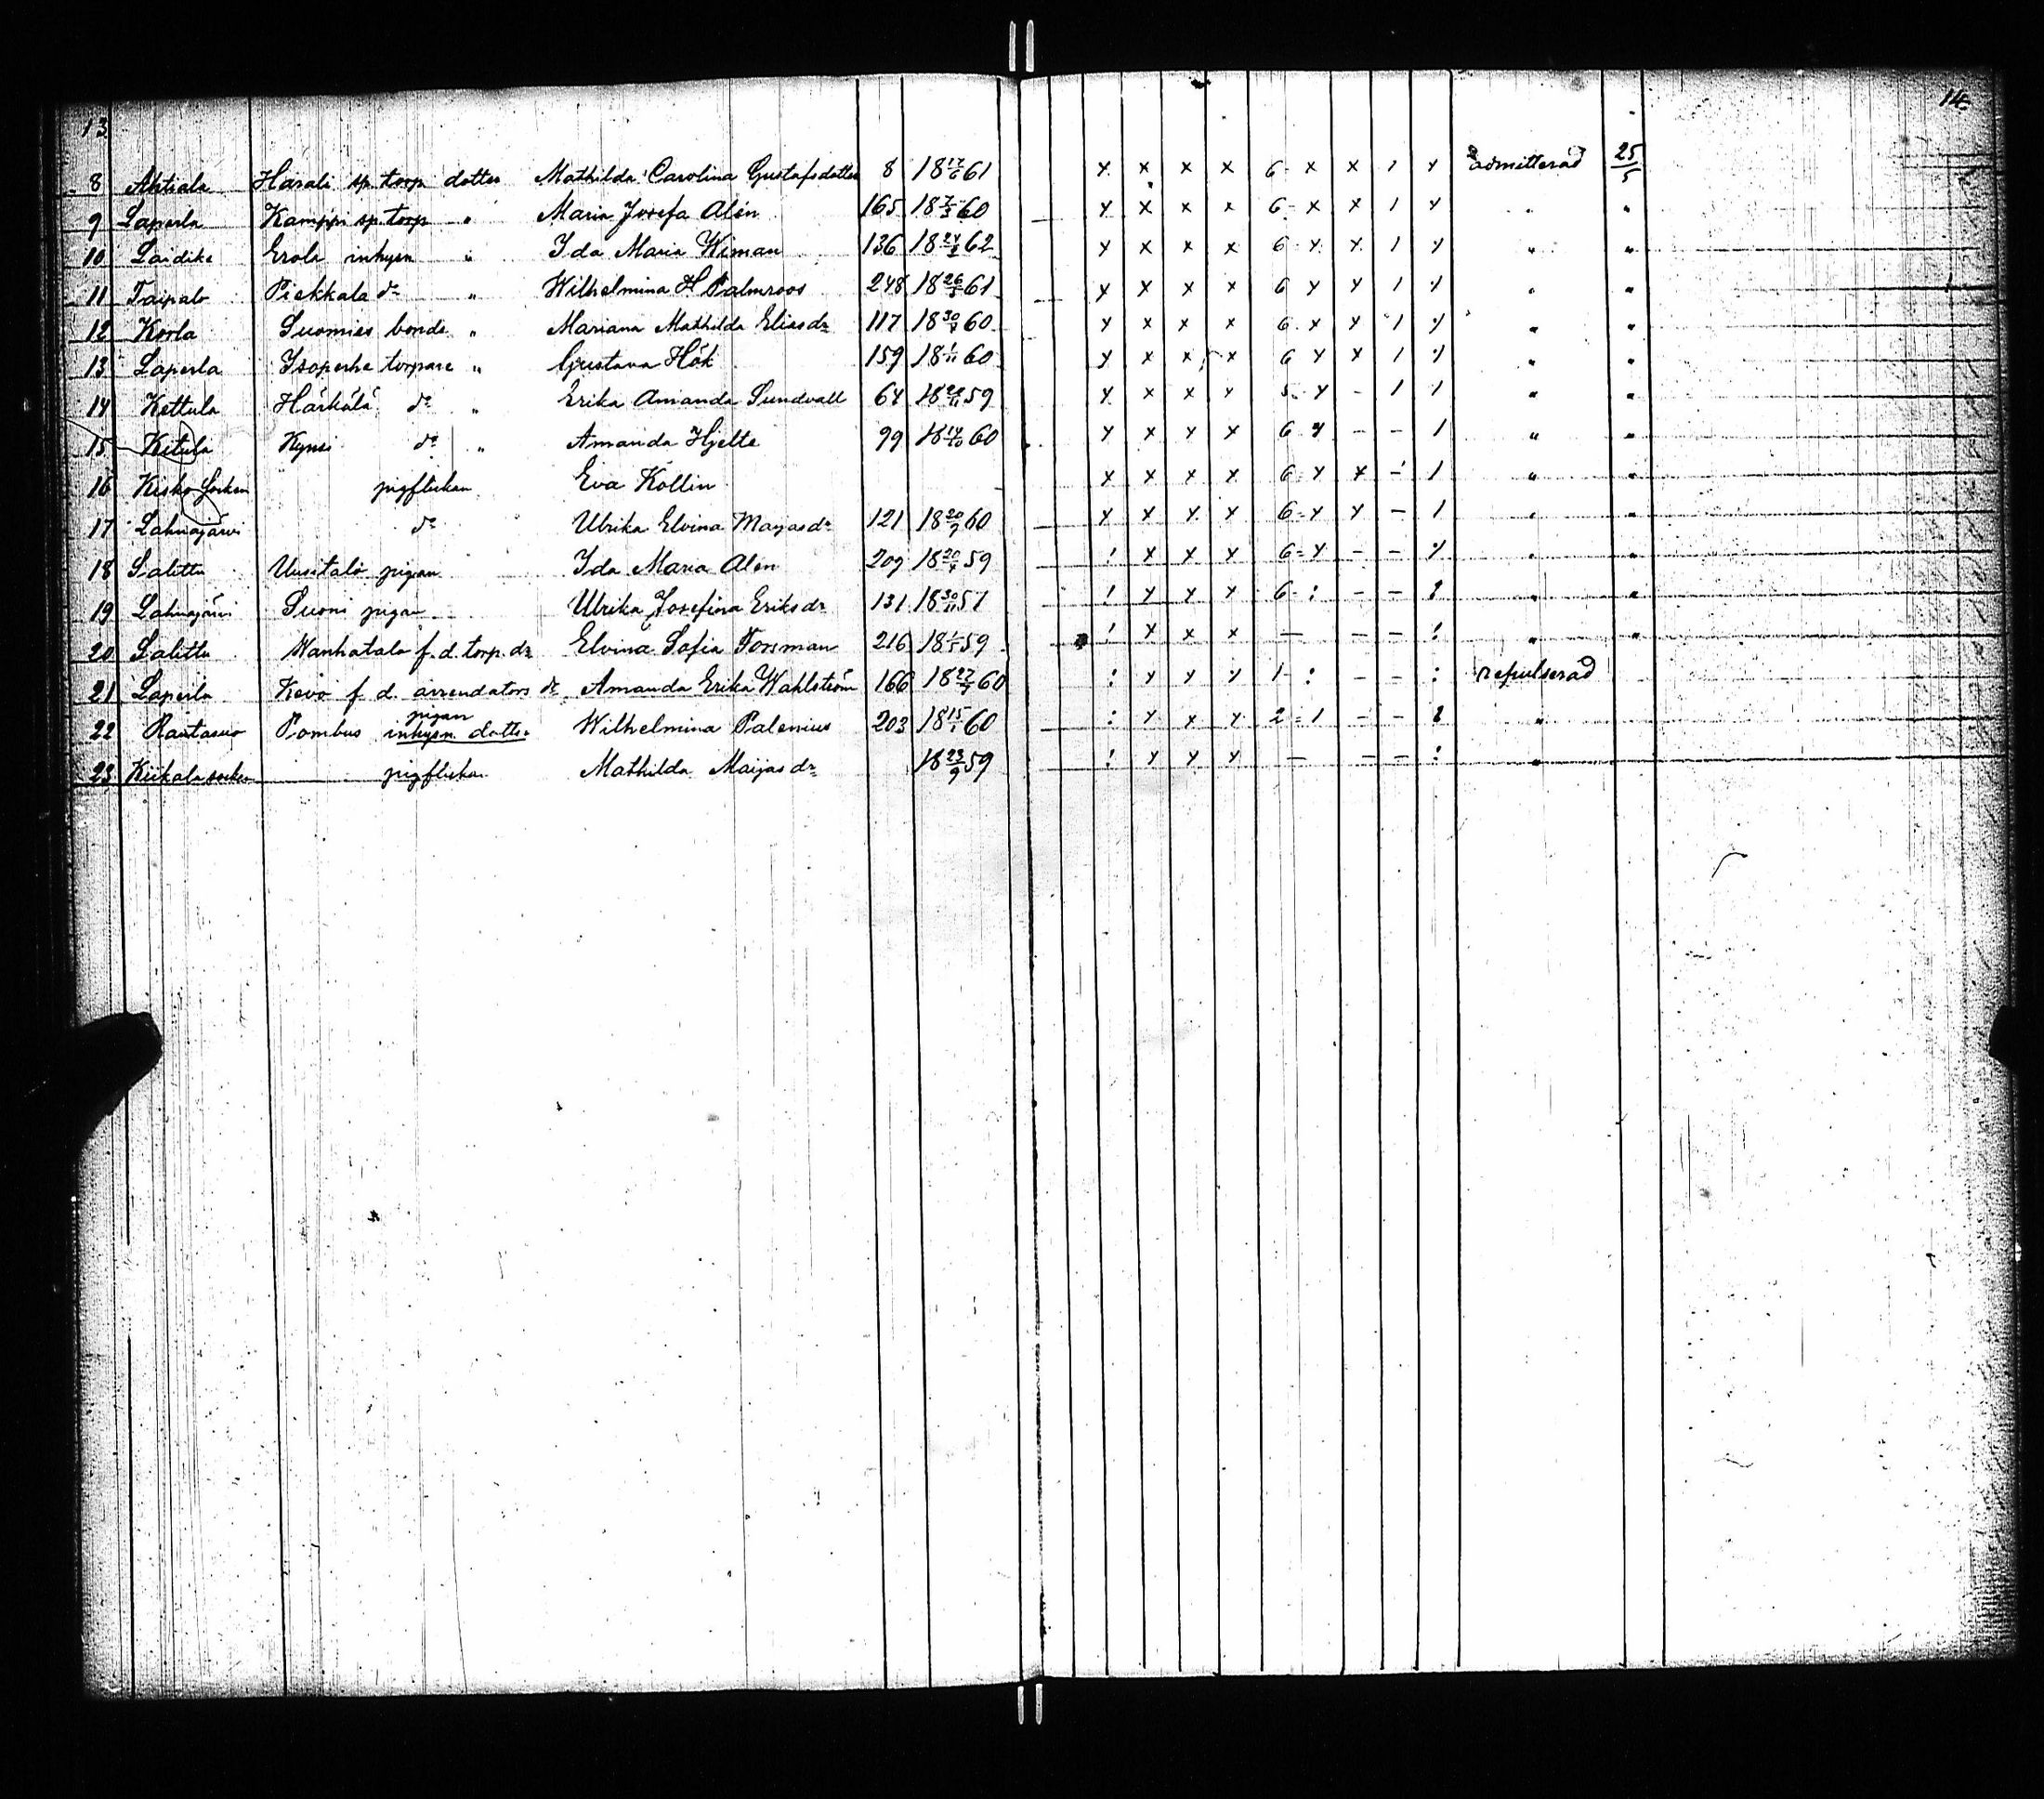 13
14
8 Ahtiala Harali sp. torp dotter Mathilda Carolina Gustafsdotter 8 18 17/6 61 x x x x 6 - x x 1 x admitterad 25/5
9 Laperla Kamppi sp. torp " Maria Josefa Alén 165 18 7/3 60 x x x x 6 - x x 1 x " "
10 Laidike Erola inhysn " Ida Maria Wiman 136 18 62 x x x x 6 - x x 1 x " "
11 Taipale Piekkala do " Wilhelmina H Palmroos 248 18 26/3 61 x x x x 6 x x 1 x " "
12 Korla Suomies bonde " Mariana Mathilda Elias dr 117 18 60 x x x x 6 - x x 1 x " "
13 Laperla Isoperhe torpare " Gustava Hök 159 18 1/11 60 x x x x 6 x x 1 x " "
14 Kettula Härkälä do " Erika Amanda Sundvall 64 18 59 x x x x 5 - x - 1 1 " "
15 Kitula Kynsi do " Amanda Hjelte 99 18 14/10 60 x x x x 6 x - - 1 " "
16 Kisko Socken pigflickan Eva Kollin x x x x 6 - x x - 1 " "
17 Lahnajärvi do Ulrika Elvina Mayas dr 121 18 20/9 60 x x x x 6 - x x - 1 " "
18 Salittu Uusitalo pigan Ida Maria Alen 209 18 59 ! x x x 6 - x - - x " "
19 Lahnajärvi Suoni pigan Ulrika Josefina Eriks dr 131 18 30/11 57 ! x x x 6 - : - - ! " "
20 Salittu Wanhatalo f. d. torp. dr Elvina Sofia Forsman 216 18 59 ! x x x - - - ! " "
21 Laperla Kevo f. d. arrendators dr Amanda Erika Wahlström 166 18 60 : x x x 1 - : - - : repulserad
22 Raatasuo Pombus pigan inhysn dotter Wilhelmina Palenius 203 18 60 : x x x 2 - 1 - - "
23 Kiikala socken pigflickan Mathilda Maijas dr 18 23/9 59 ! x x x - - - : "